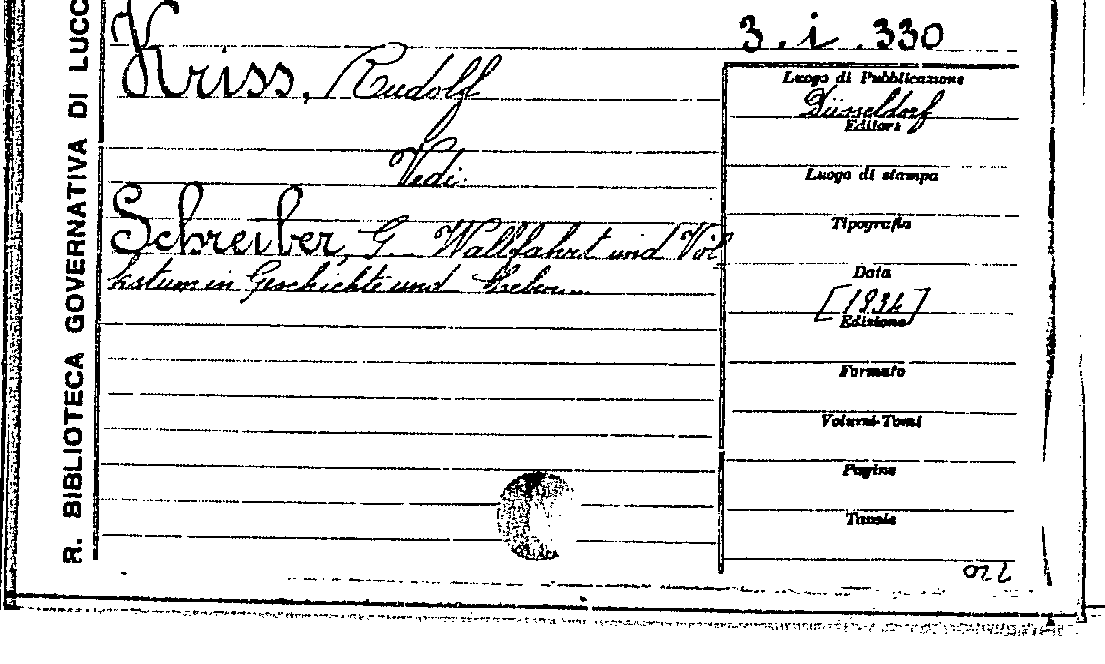 R. BIBLIOTECA GOVERNATIVA DI LUCC
3. i. 330
Kriss, Rudolf
Vedi:
Schreiber, G. Wallfahrt und Vol
kstum in Geschichte und Leben...
Luogo di Pubblicazione
Düsseldorf
Editore
Luogo di stampa
Tipografia
Data
[1934]
Edizione
Formato
Volumi-Tomi
Pagine
Tavole